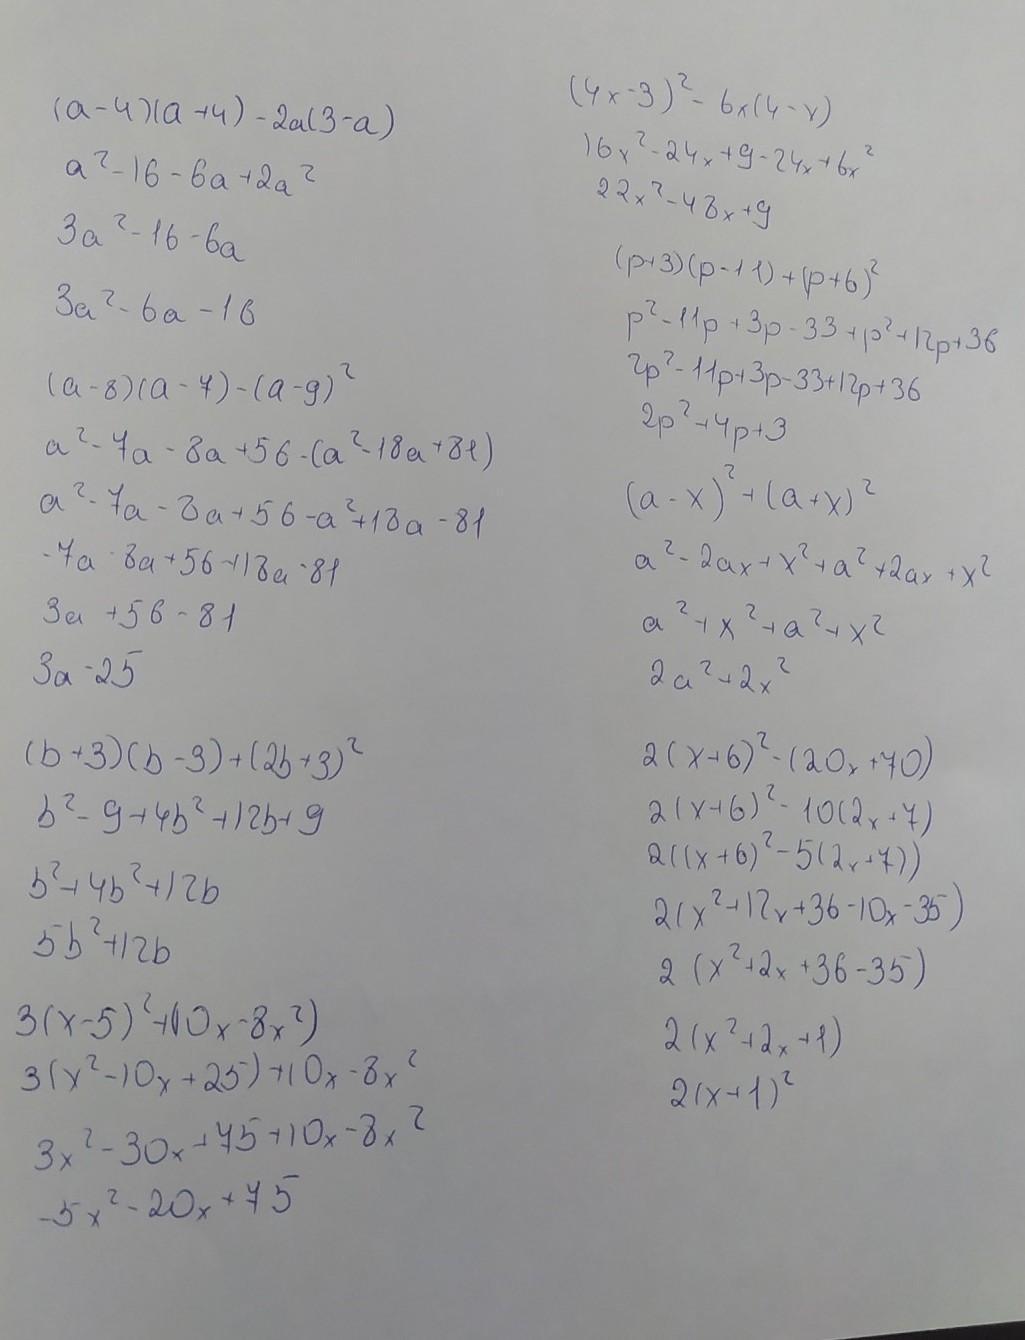 (a-4)(a+4)-2a(3-a)
a²-16-6a+2a²
3a²-16-6a
3a²-6a-16
(a-8)(a-7)-(a-9)²
a²-7a-8a+56-(a²-18a+81)
a²-7a-8a+56-a²+18a-81
-7a-8a+56+18a-81
3a+56-81
3a-25
(b+3)(b-3)+(2b+3)²
b²-9+4b²+12b+9
b²+4b²+12b
5b²+12b
3(x-5)²+(10x-8x²)
3(x²-10x+25)+10x-8x²
3x²-30x+75+10x-8x²
-5x²-20x+75
(4x-3)²-6x(4-x)
16x²-24x+9-24x+6x²
22x²-48x+9
(p+3)(p-11)+(p+6)²
p²-11p+3p-33+p²+12p+36
2p²-11p+3p-33+12p+36
2p²+4p+3
(a-x)²+(a+x)²
a²-2ax+x²+a²+2ax+x²
a²+x²+a²+x²
2a²+2x²
2(x+6)²-(20x+70)
2(x+6)²-10(2x+7)
2((x+6)²-5(2x+7))
2(x²+12x+36-10x-35)
2(x²+2x+36-35)
2(x²+2x+1)
2(x+1)²